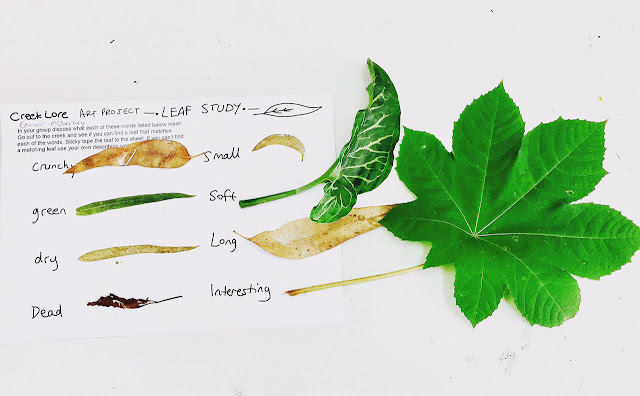 Creek Lore ART PROJECT → LEAF STUDY.
In your group discuss what each of these words listed below mean.
Go out to the creek and see if you can find a leaf that matches
each of the words. Sticky tape the leaf to the sheet. If you can't find
a matching leaf use your own describing
Crunchy Small
green Soft
dry Long
Dead Interesting